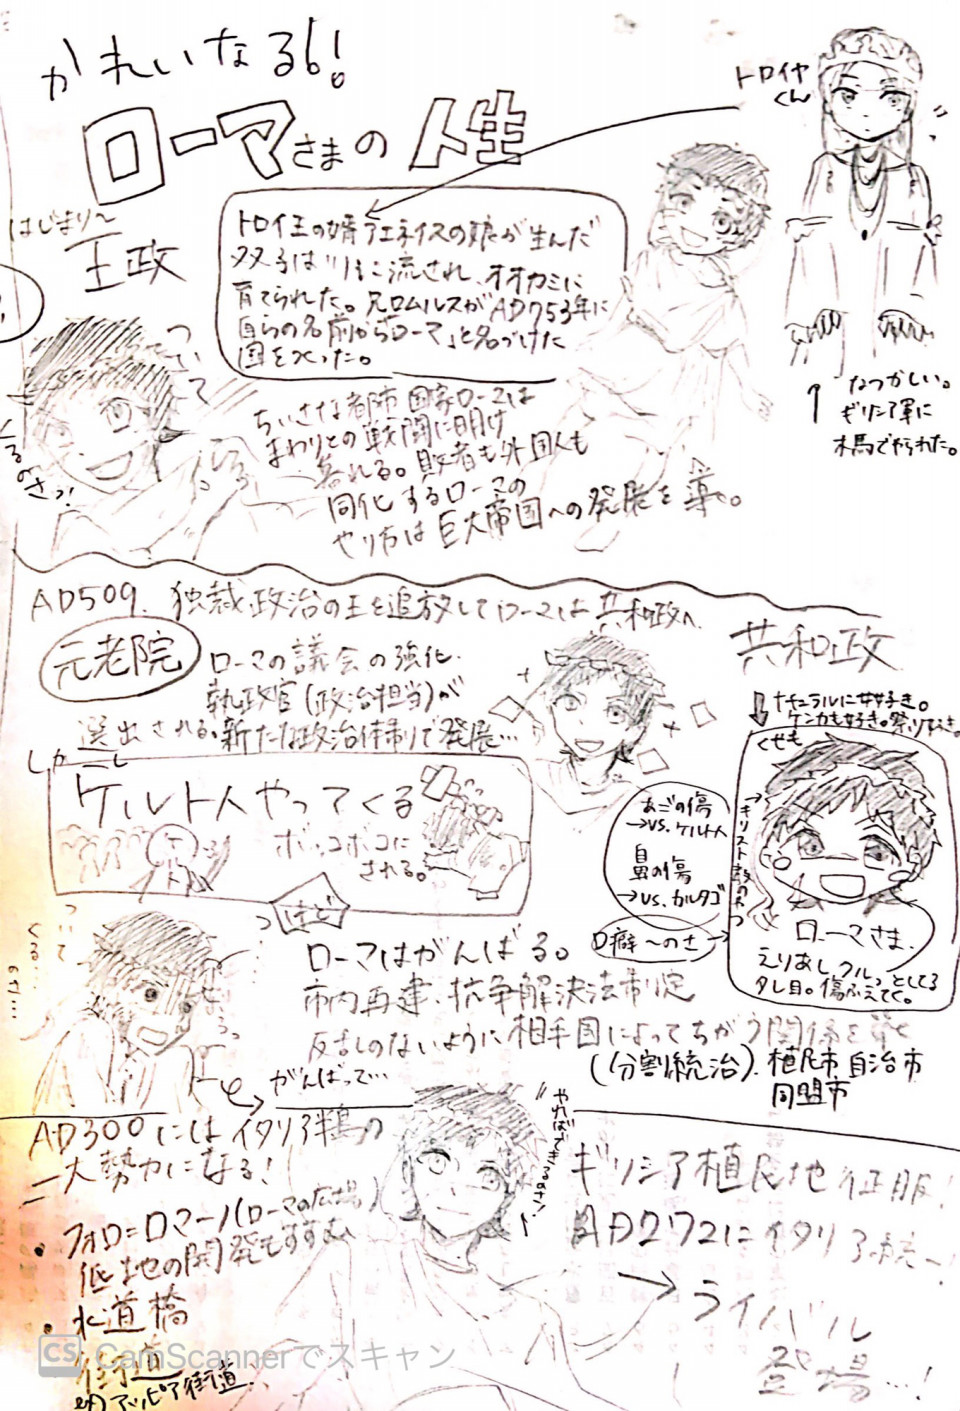 かれいなる6!
ローマさまの人生
トロイヤ
くん
はじまり〜
王政
トロイ王の婿アエネイスの娘が生んだ
双子は川に流され、オオカミに
育てられた。兄ロムルスがAD753年に
自らの名前から「ローマ」と名づけた
国をつくった。
ついて
くるのさっ!
ちいさな都市国家ローマは
まわりとの戦闘に明け
暮れる。敗者も外国人も
同化するローマの
やり方は巨大帝国への発展を導く。
↑なつかしい。
ギリシア軍に
木馬でやられた。
AD509. 独裁政治の王を追放してローマは共和政へ.
共和政
元老院
ローマの議会の強化.
執政官(政治担当)が
選出される。新たな政治体制で発展…
しかーし
ケルト人やってくる
ボッコボコに
される。
ナチュラルに女好き。
ケンカも好き。祭り好き。
くせも
あごの傷
→vs.ケルト人
鼻の傷
→vs.カルタゴ
口癖〜のさ→
ローマさま.
えりあしクルっとしてる
タレ目。傷ふえてく。
けど
ついて
くる…
のさ…
ローマはがんばる。
市内再建、抗争解決法制定
反乱のないように相手国によってちがう関係を築く
(分割統治). 植民市 自治市
同盟市
がんばって…
AD300にはイタリア半島の
一大勢力になる!
・フォロ=ロマーノ(ローマの広場)
低地の開発もすすむ
・水道橋
街道
例)アッピア街道.
やればできるのさ!
ギリシア植民地征服!
AD272にイタリア統一!
→ライバル
登場…!
CS CamScannerでスキャン